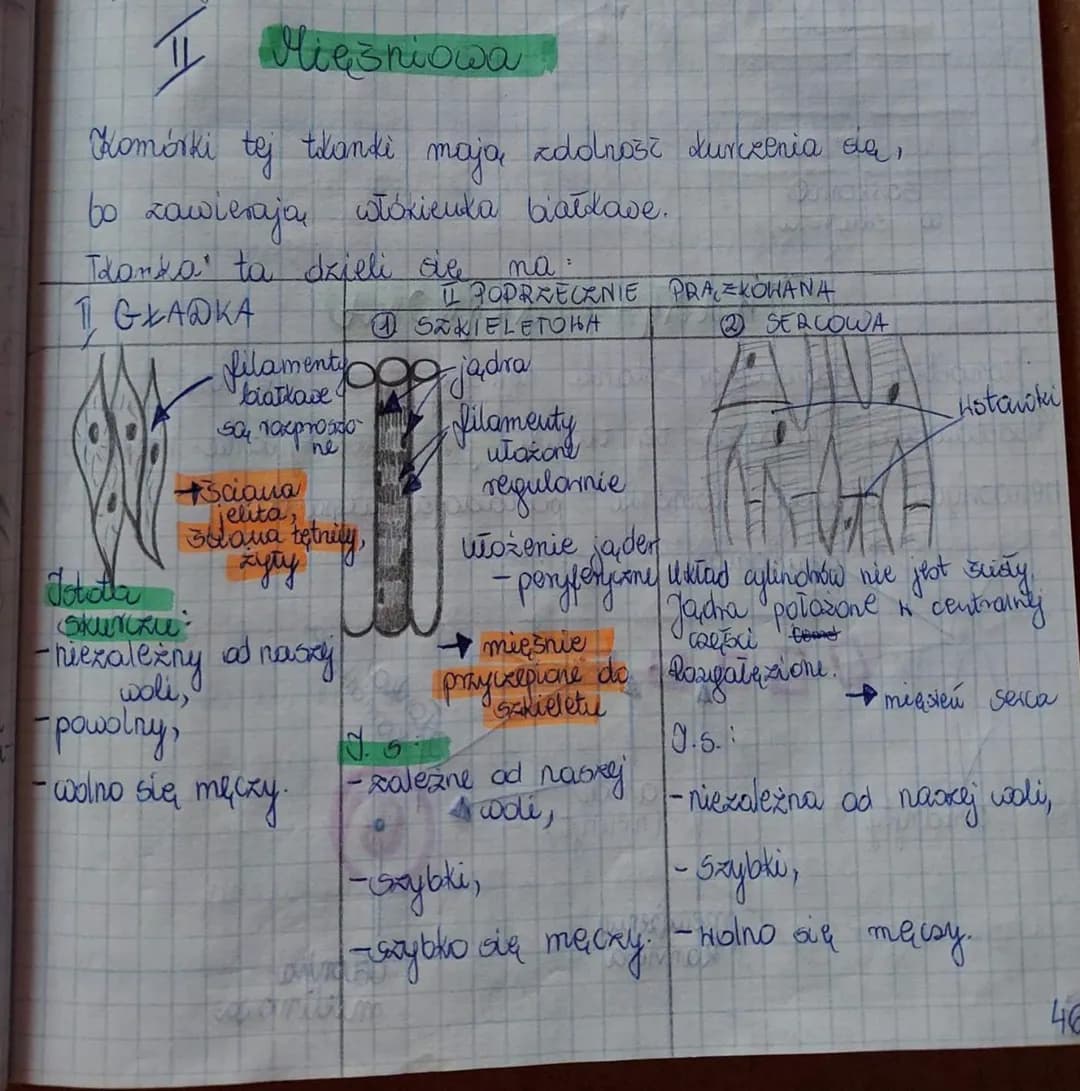 II Mięśniowa
Komórki tej tkanki mają zdolność kurczenia się,
bo zawierają włókienka białkowe.
Tkanka ta dzieli się na:
I GŁADKA
filamenty
białkowe
są rozproszo-
ne
→ ściana
jelita,
ściana tętnicy,
żyły
Istota
skurczu:
- niezależny od naszej
woli,
- powolny,
- wolno się męczy.
II POPRZECZNIE PRĄŻKOWANA
① SZKIELETOWA
jądra
filamenty
ułożone
regularnie
ułożenie jąder
- peryferyczne
→ mięśnie
przyczepione do
szkieletu
I. s.:
- zależne od naszej
woli,
- szybki,
- szybko się męczy.
② SERCOWA
wstawki
Układ cylindrów nie jest ścisły.
Jądra położone w centralnej
części
Rozgałęzione.
→ mięsień serca
I.s.:
- niezależna od naszej woli,
- Szybki,
- Wolno się męczy.
46